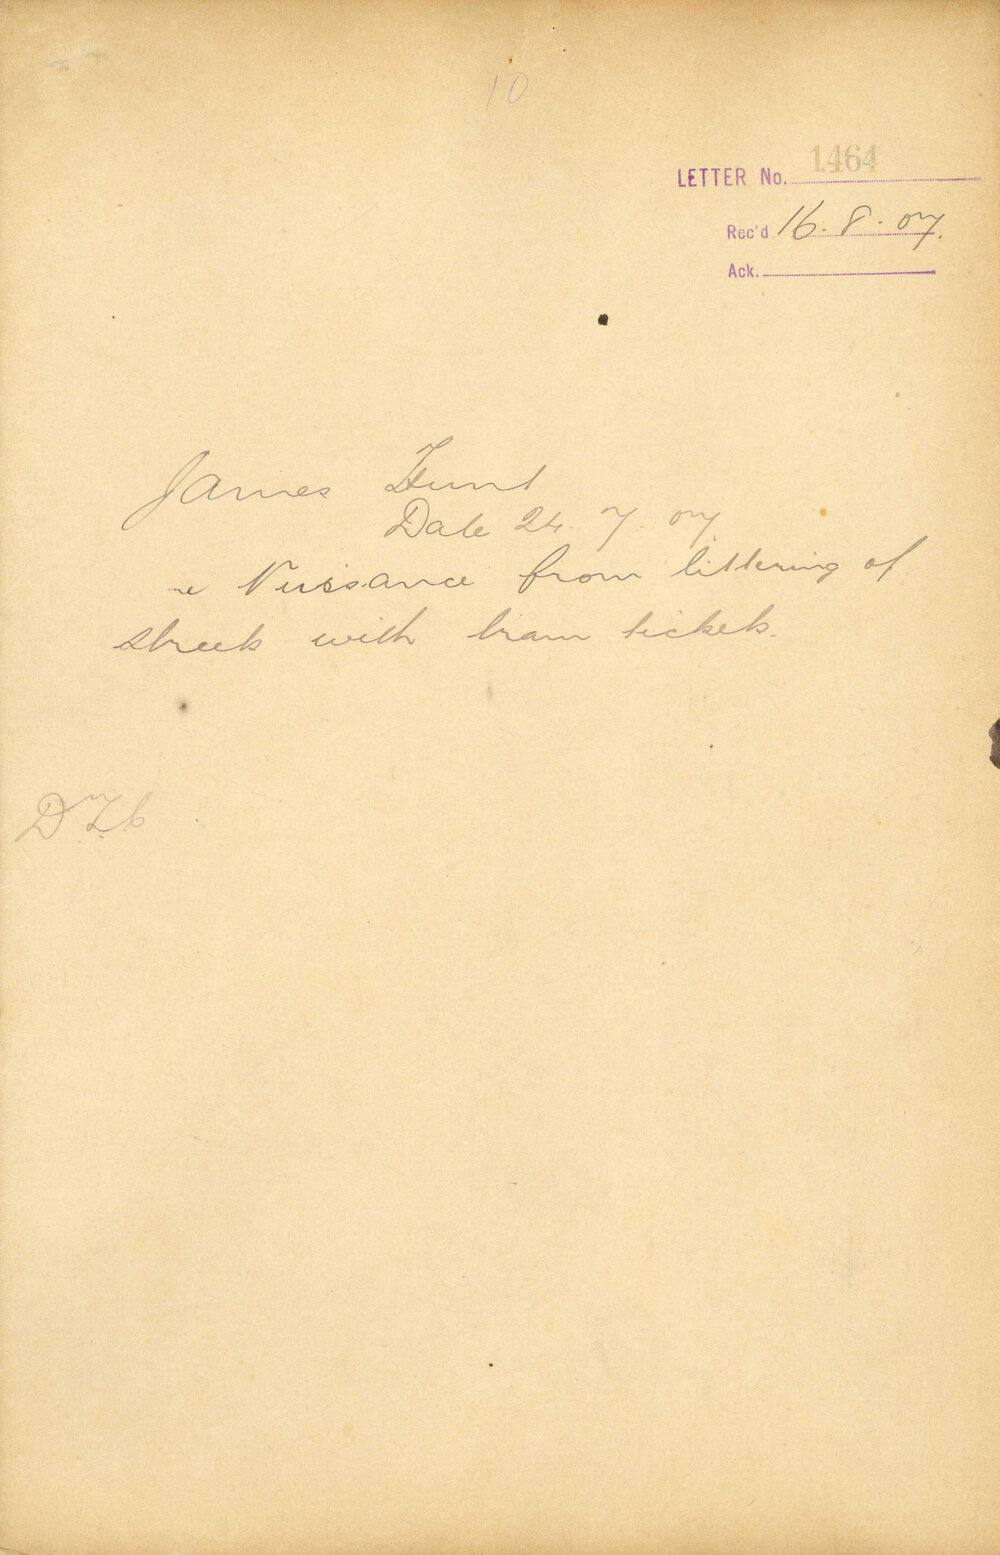 10
LETTER No. 1464
Rec'd 16.8.07.
Ack.
James Hunt
Date 24.7.07
re Nuissance from littering of
streets with tram tickets.